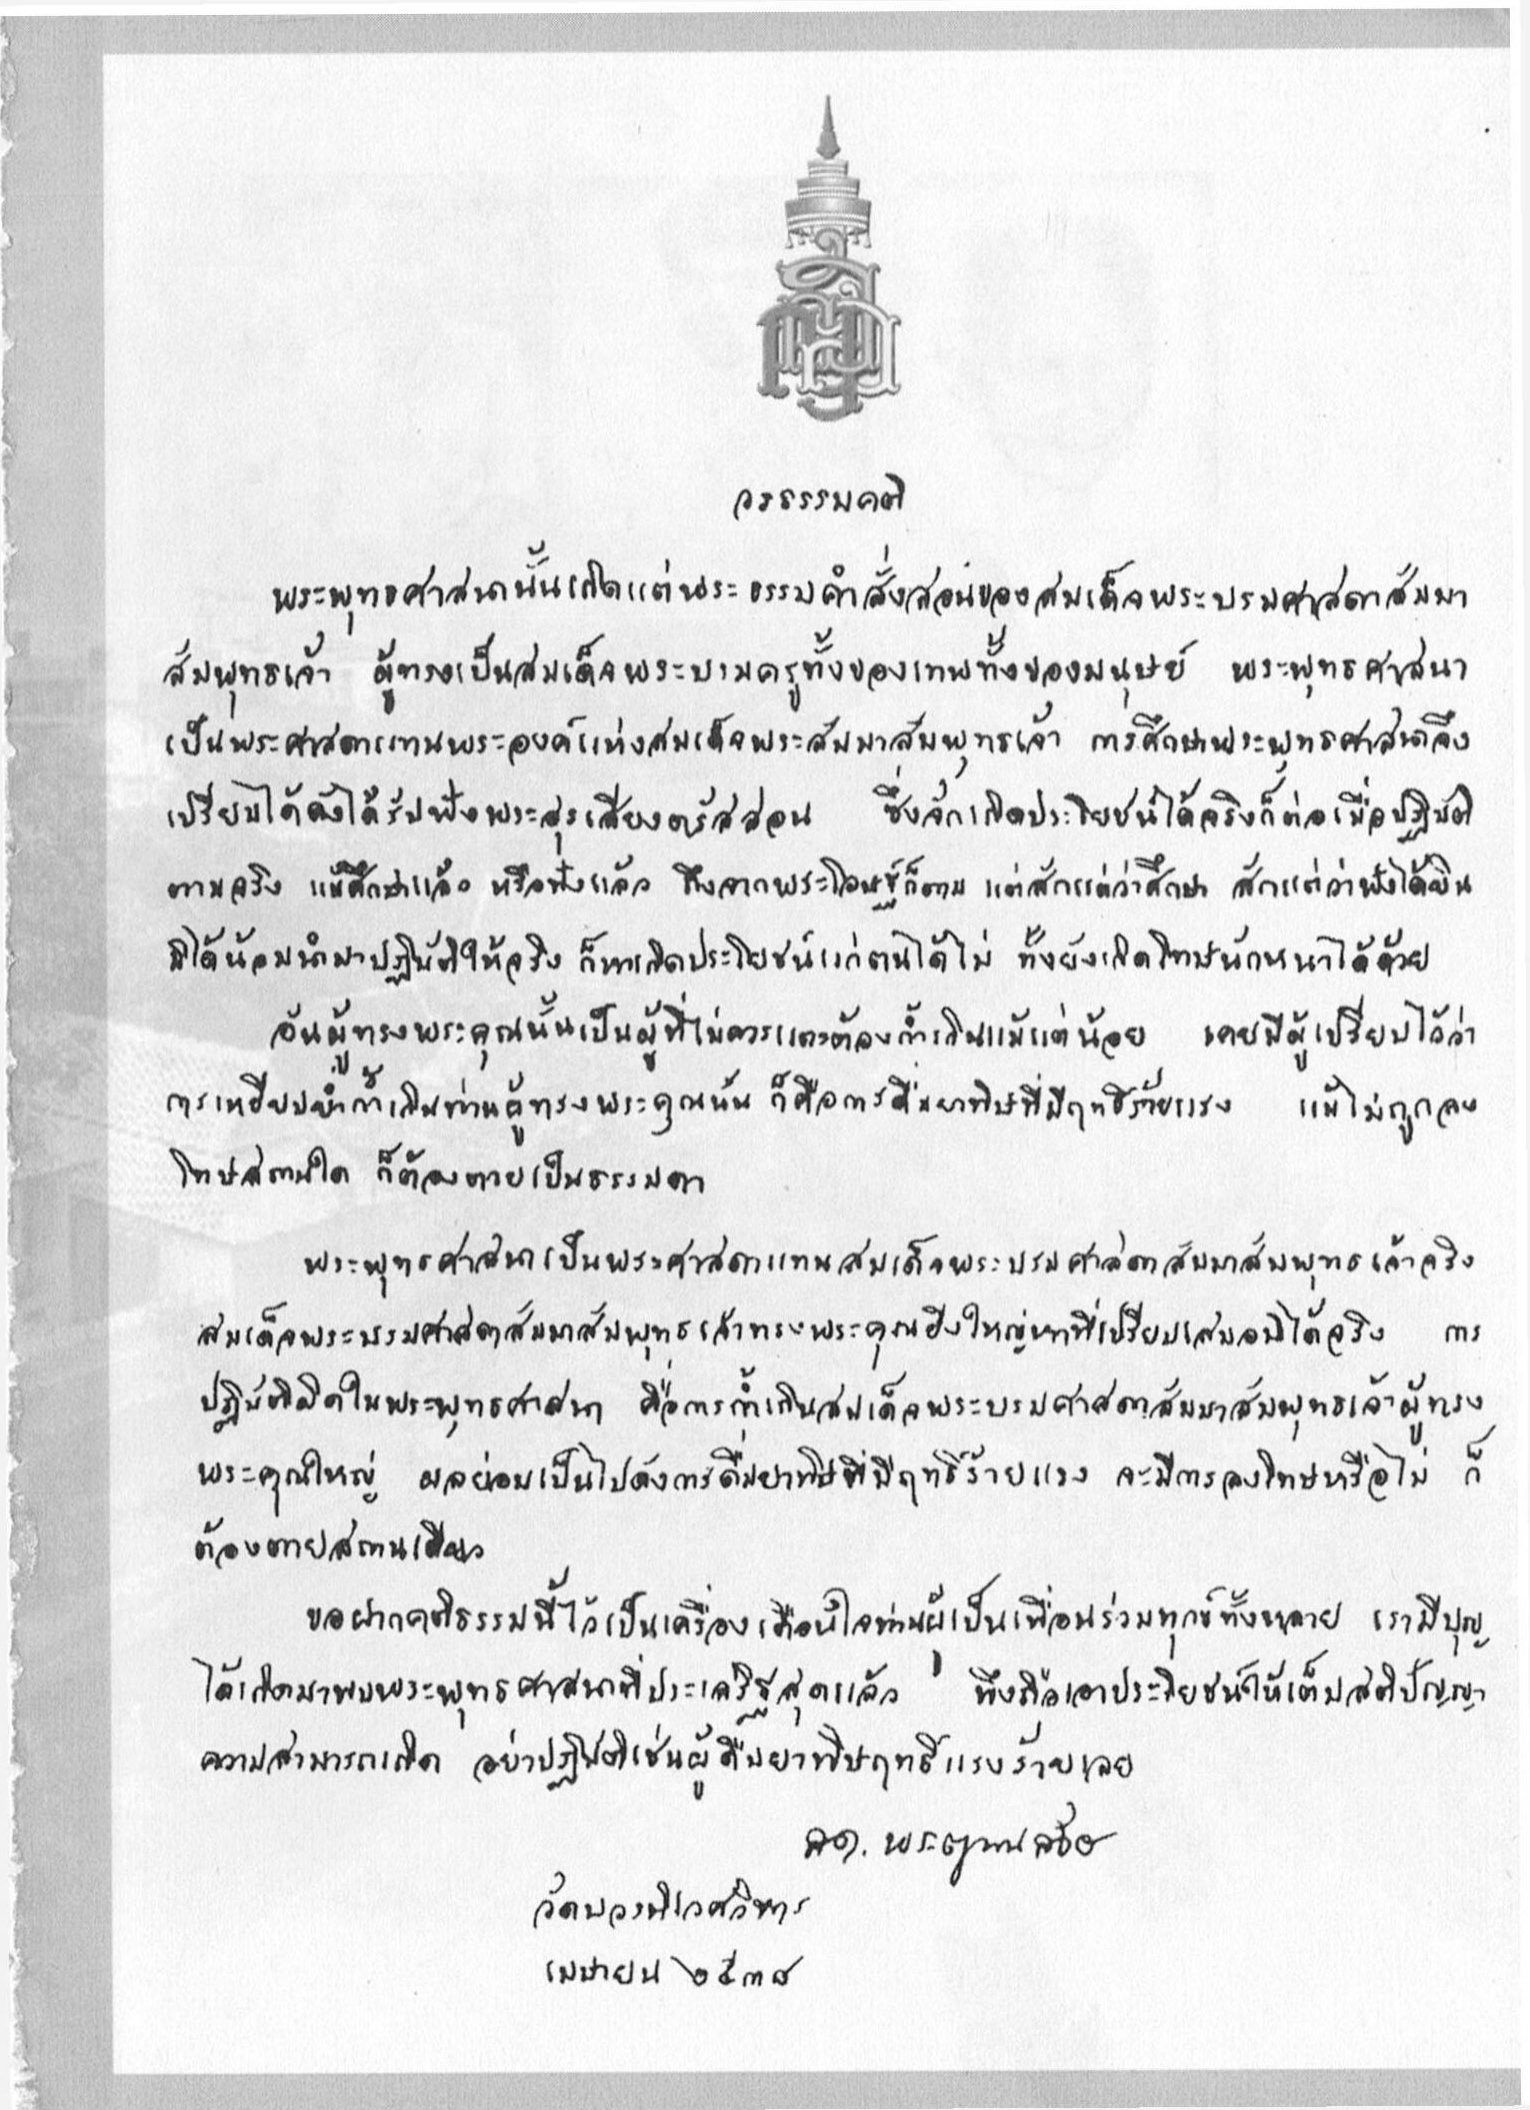 วรธรรมคติ
พระพุทธศาสนานั้นเกิดแต่พระธรรมคำสั่งสอนของสมเด็จพระบรมศาสดาสัมมา
สัมพุทธเจ้า ผู้ทรงเป็นสมเด็จพระบรมครูทั้งของเทพทั้งของมนุษย์ พระพุทธศาสนา
เป็นพระศาสดาแทนพระองค์แห่งสมเด็จพระสัมมาสัมพุทธเจ้า การศึกษาพระพุทธศาสนาจึง
เปรียบได้ดังได้รับฟังพระสุรเสียงตรัสสอน ซึ่งจักเกิดประโยชน์ได้จริงก็ต่อเมื่อปฏิบัติ
ตามจริง แม้ศึกษาแล้ว หรือฟังแล้ว ถึงจากพระโอษฐ์ก็ตาม แต่สักแต่ว่าศึกษา สักแต่ว่าฟังได้ยิน
มิได้น้อมนำมาปฏิบัติให้จริง ก็หาเกิดประโยชน์แก่ตนได้ไม่ ทั้งยังเกิดโทษนักหนาได้ด้วย
อันผู้ทรงพระคุณนั้นเป็นผู้ที่ไม่ควรแตะต้องก้ำเกินแม้แต่น้อย เคยมีผู้เปรียบไว้ว่า
การเหยียบย่ำก้ำเกินท่านผู้ทรงพระคุณนั้น ก็คือการดื่มยาพิษที่มีฤทธิ์ร้ายแรง แม้ไม่ถูกลง
โทษสถานใด ก็ต้องตายเป็นธรรมดา
พระพุทธศาสนาเป็นพระศาสดาแทนสมเด็จพระบรมศาสดาสัมมาสัมพุทธเจ้าจริง
สมเด็จพระบรมศาสดาสัมมาสัมพุทธเจ้าทรงพระคุณยิ่งใหญ่หาที่เปรียบเสมอมิได้จริง การ
ปฏิบัติผิดในพระพุทธศาสนา คือการก้ำเกินสมเด็จพระบรมศาสดาสัมมาสัมพุทธเจ้าผู้ทรง
พระคุณใหญ่ ผลย่อมเป็นไปดังการดื่มยาพิษที่มีฤทธิ์ร้ายแรง จะมีการลงโทษหรือไม่ ก็
ต้องตายสถานเดียว
ขอฝากคติธรรมนี้ไว้เป็นเครื่องเตือนใจท่านผู้เป็นเพื่อนร่วมทุกข์ทั้งหลาย เรามีบุญ
ได้เกิดมาพบพระพุทธศาสนาที่ประเสริฐสุดแล้ว พึงถือเอาประโยชน์ให้เต็มสติปัญญา
ความสามารถเถิด อย่าปฏิบัติเช่นผู้ดื่มยาพิษฤทธิ์แรงร้ายเลย
สมเด็จพระญาณสังวร
วัดบวรนิเวศวิหาร
เมษายน ๒๕๓๘